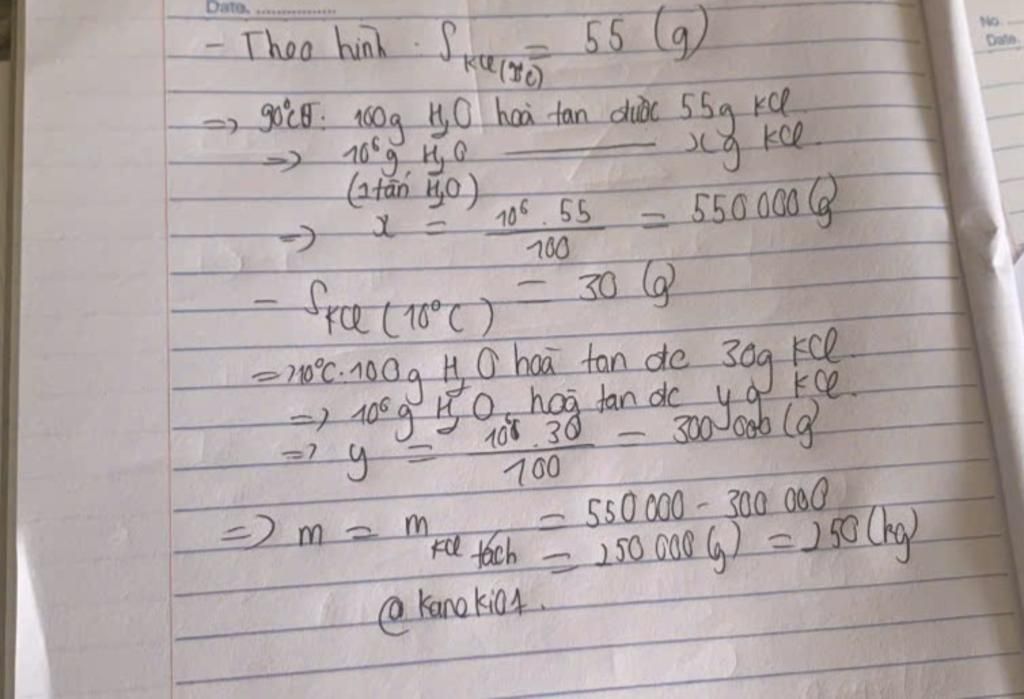 Date. ..............
No.
Date.
- Theo hình. S KCl = 55 (g)
=> 90°C: 100g H₂O hoà tan được 55g KCl
=> 10⁶g H₂O ——— xg KCl.
(1 tấn H₂O)
=> x = 10⁶ . 55 / 100 = 550 000 (g)
- S KCl (10°C) = 30 (g)
=> 10°C. 100g H₂O hoà tan dc 30g KCl.
=> 10⁶g H₂O hoà tan dc y g KCl.
=> y = 10⁶ . 30 / 100 = 300 000 (g)
=> m = m KCl tách = 550 000 - 300 000
= 250 000 (g) = 250 (kg)
@kaneki01.